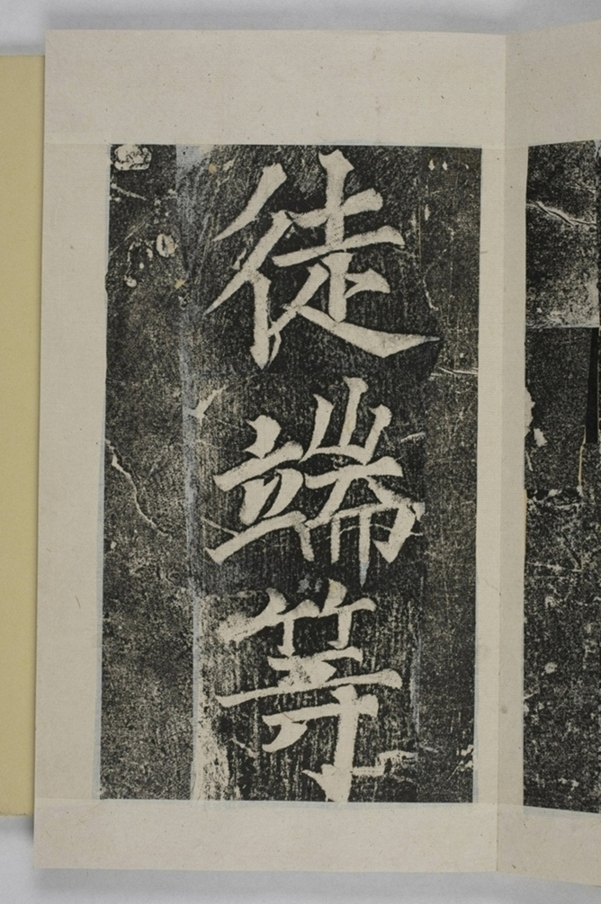 徒端等